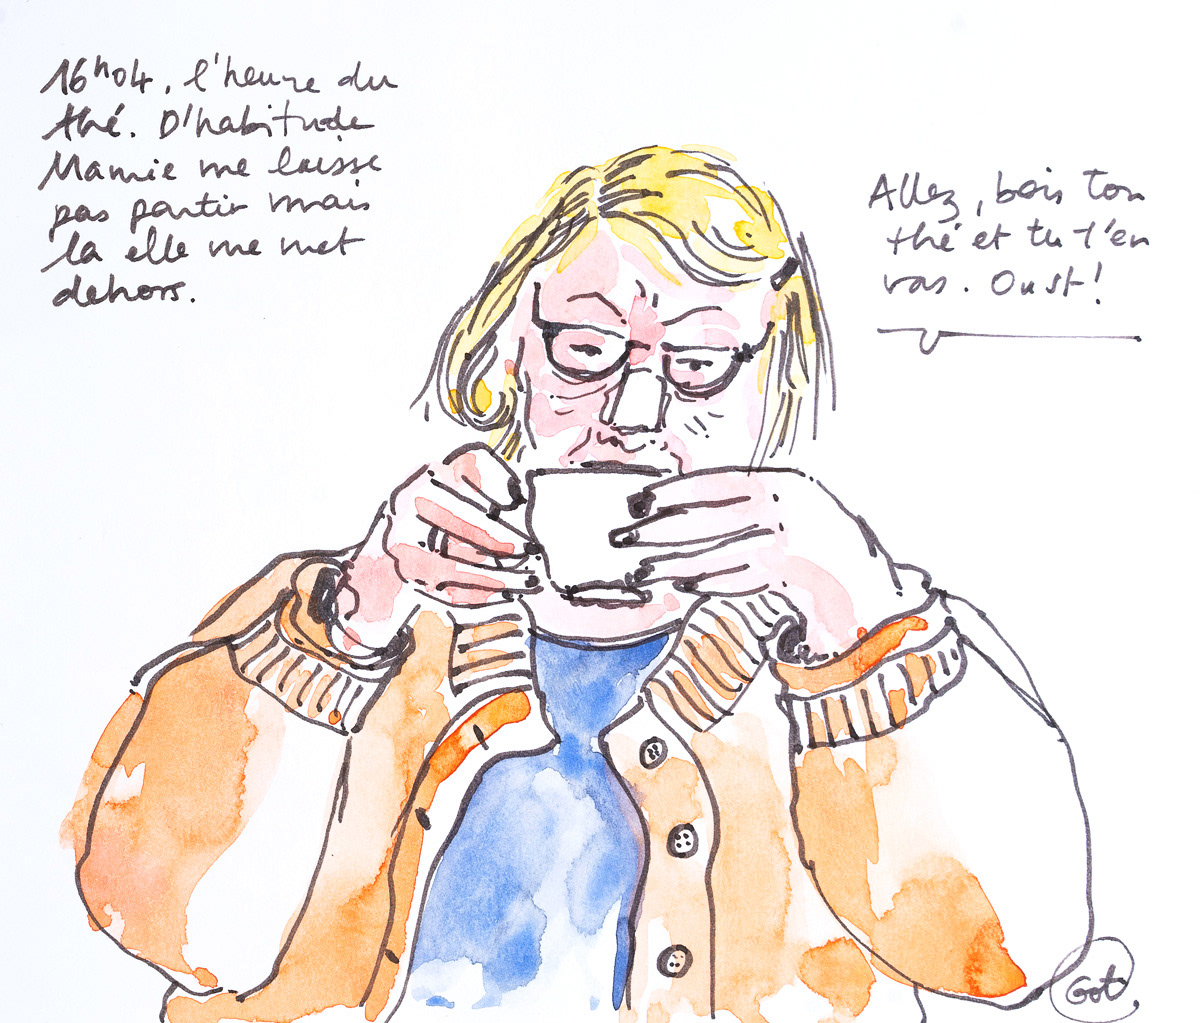 16h04, l'heure du
thé. D'habitude
Mamie me laisse
pas partir mais
là elle me met
dehors.
Allez, bois ton
thé et tu t'en
vas. Oust!
Got.